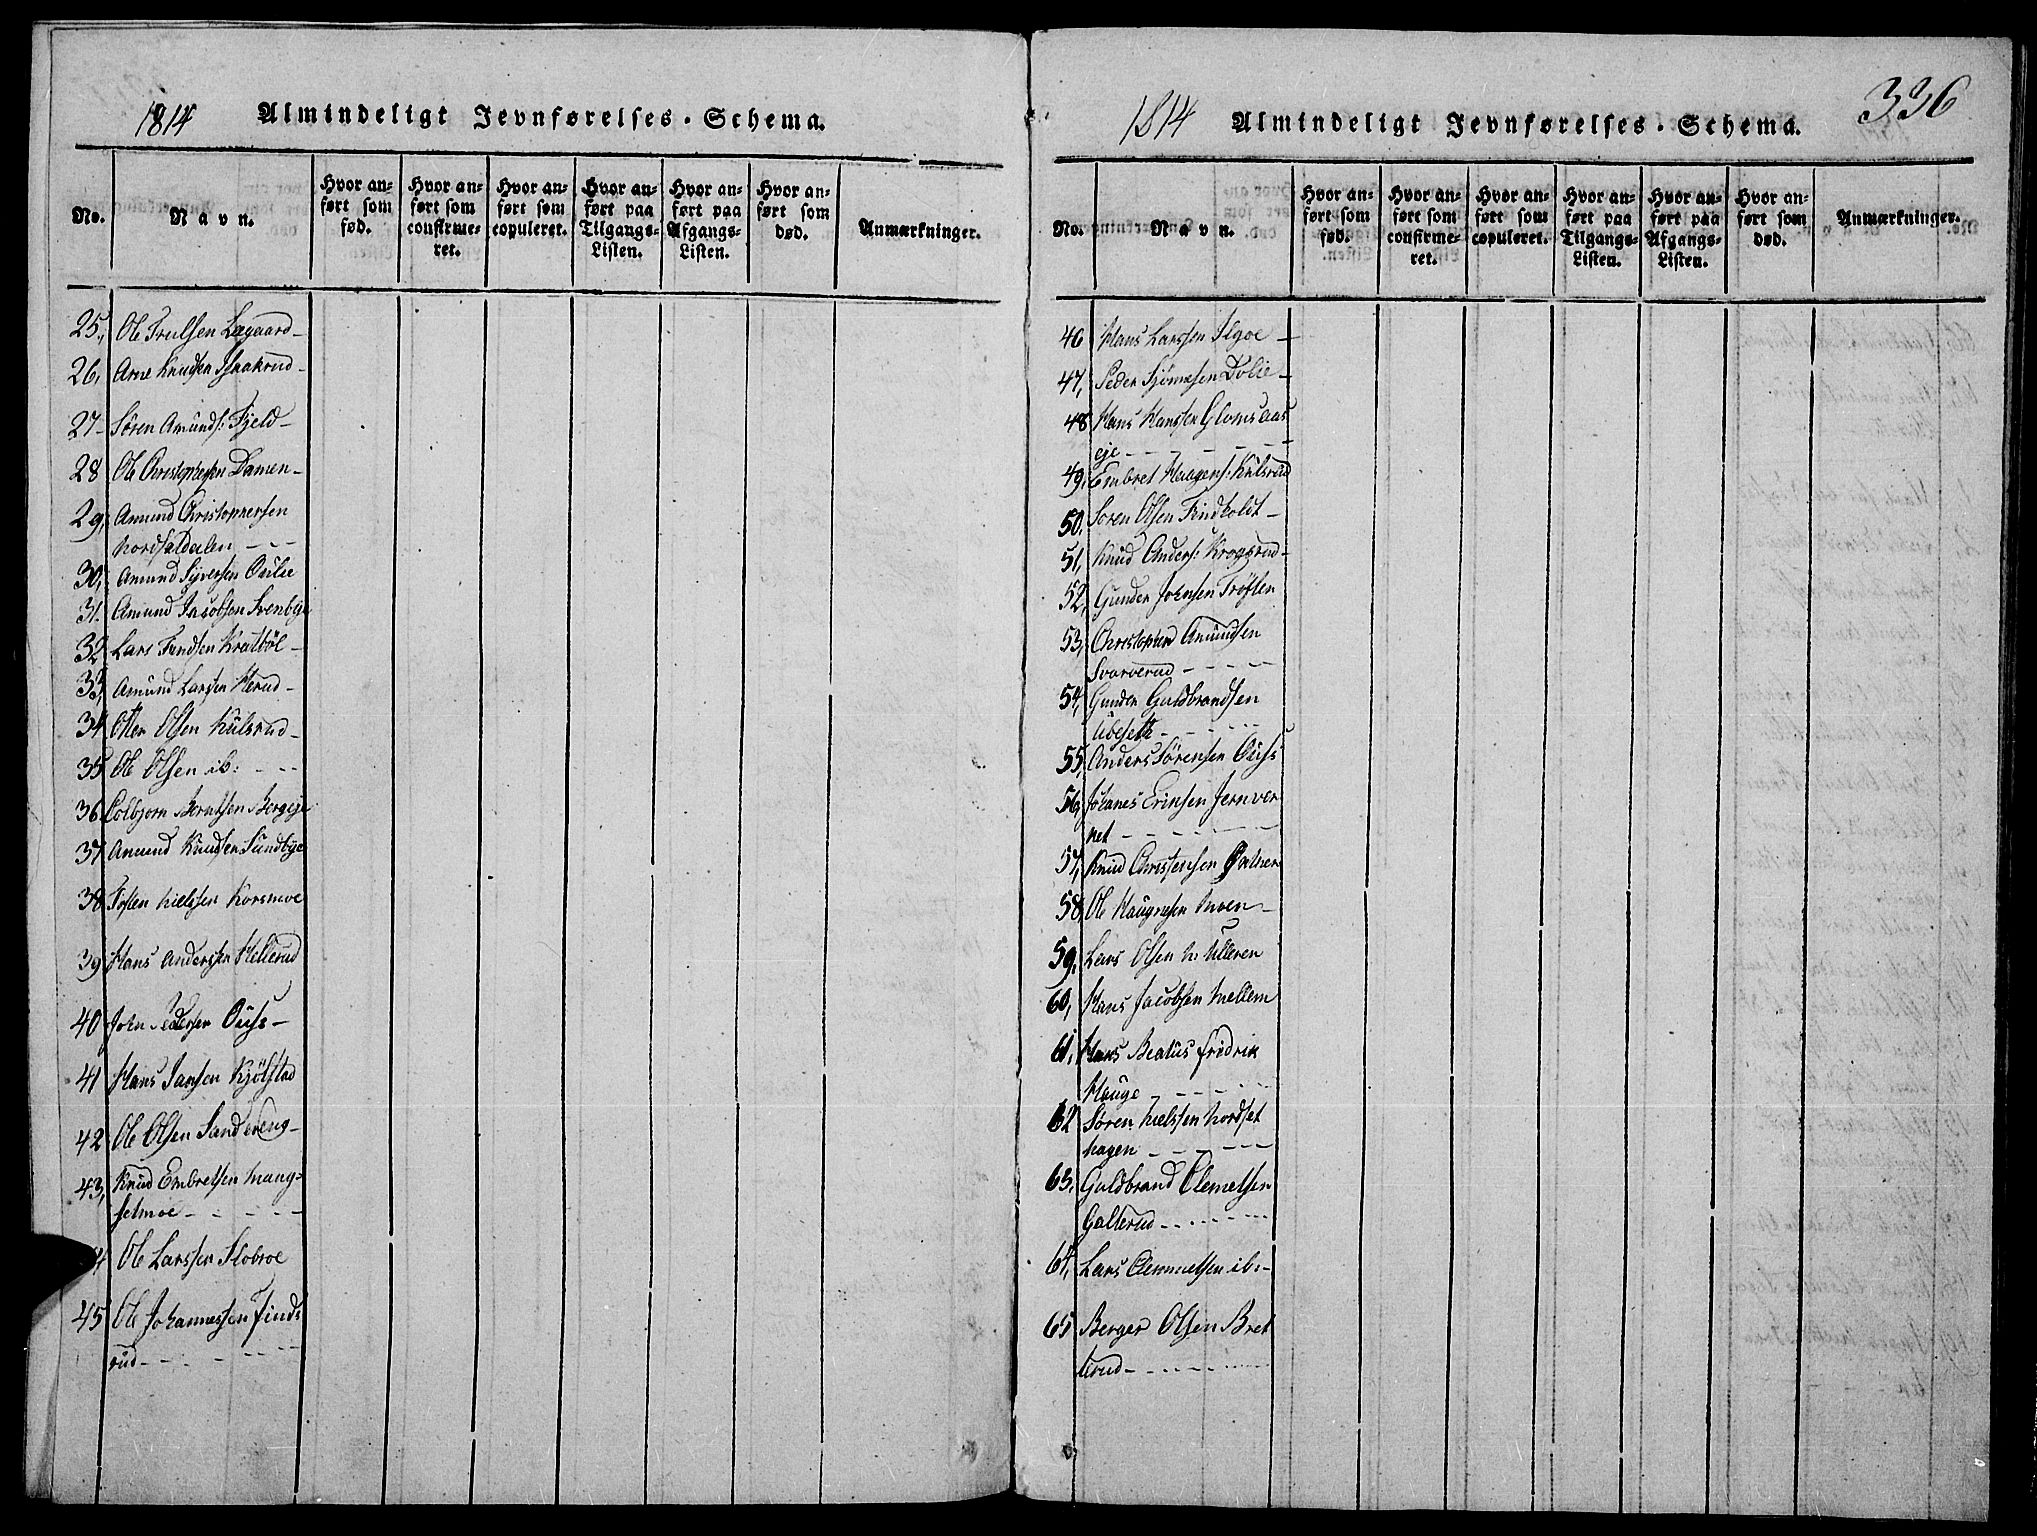 1814 Almindeligt Jevnførelses-Schema.
No.
Navn.
Hvor an-
ført som
fød.
Hvor an-
ført som
confirme-
ret.
Hvor an-
ført som
copuleret.
Hvor an-
ført paa
Tilgangs-
Listen.
Hvor an-
ført paa
Afgangs-
Listen.
Hvor an-
ført som
død.
Anmærkninger.
25., Ole Trulsen Løgaard-
26, Arne Knudsen Isaakrud-
27- Søren Amunds: Fjeld-
28 Ole Christophersen Damen-
29, Amund Christophersen
Nordsætdalen - - -
30, Amund Syversen Oulie
31. Amund Jacobsen Svenbye
32 Lars Findsen Kratbøl-
33, Amund Larsen Herud-
34 Otter Olsen Kulsrud-
35 Ole Olsen ib: - - -
36 Colbjørn Berntsen Bergeje
37 Amund Knudsen Sundbye
38 Tosten Nielssen Korsmoe
39 Hans Andersen Hellerud
40 John Pedersen Ouss-
41 Hans Jansen Kjølstad
42 Ole Olsen Sandereng-
43, Knud Embretsen Mang-
selmoe - - - - -
4 Ole Larssen Slobroe
45 Ole Johannessen Finds
rud - - - - - -
1814 Almindeligt Jevnførelses-Schema. 336
No.
Navn.
Hvor an-
ført som
fød.
Hvor an-
ført som
confirme-
ret.
Hvor an-
ført som
copuleret.
Hvor an-
ført paa
Tilgangs-
Listen.
Hvor an-
ført paa
Afgangs-
Listen.
Hvor an-
ført som
død.
Anmærkninger.
46 Hans Larssen -
47, Peder Dolie-
48 Hans Hanssen Glomsaas
eje - - - - - -
49. Embret Haagens: Kulsrud
50. Soren Olsen Findholdt-
51, Knud Anders: Krogsrud-
52, Gunder Johnsen Trøften
53, Christopher Amundsen
Svarverud - - - - -
54, Gunder Guldbrandsen
Ubesatt - - - - - -
55, Anders Sørensen Ouss
56, Johanes Ericsen Jernver
ket - - - - - - -
57, Knud Christensen
58, Ole Haagnsen Moen-
59. Lars Olsen N: Ulleren
60, Hans Jacobsen Mellem
61. Hans Beatus fridrik
Hauge - - - - - -
62 Søren Nielssen Nordset
hagen - - - - - -
63. Guldbrand Clemetsen
Galterud - - - - - -
64, Lars Clemmetsen ib:-
65 Berger Olsen Bret
terud - - - - - -